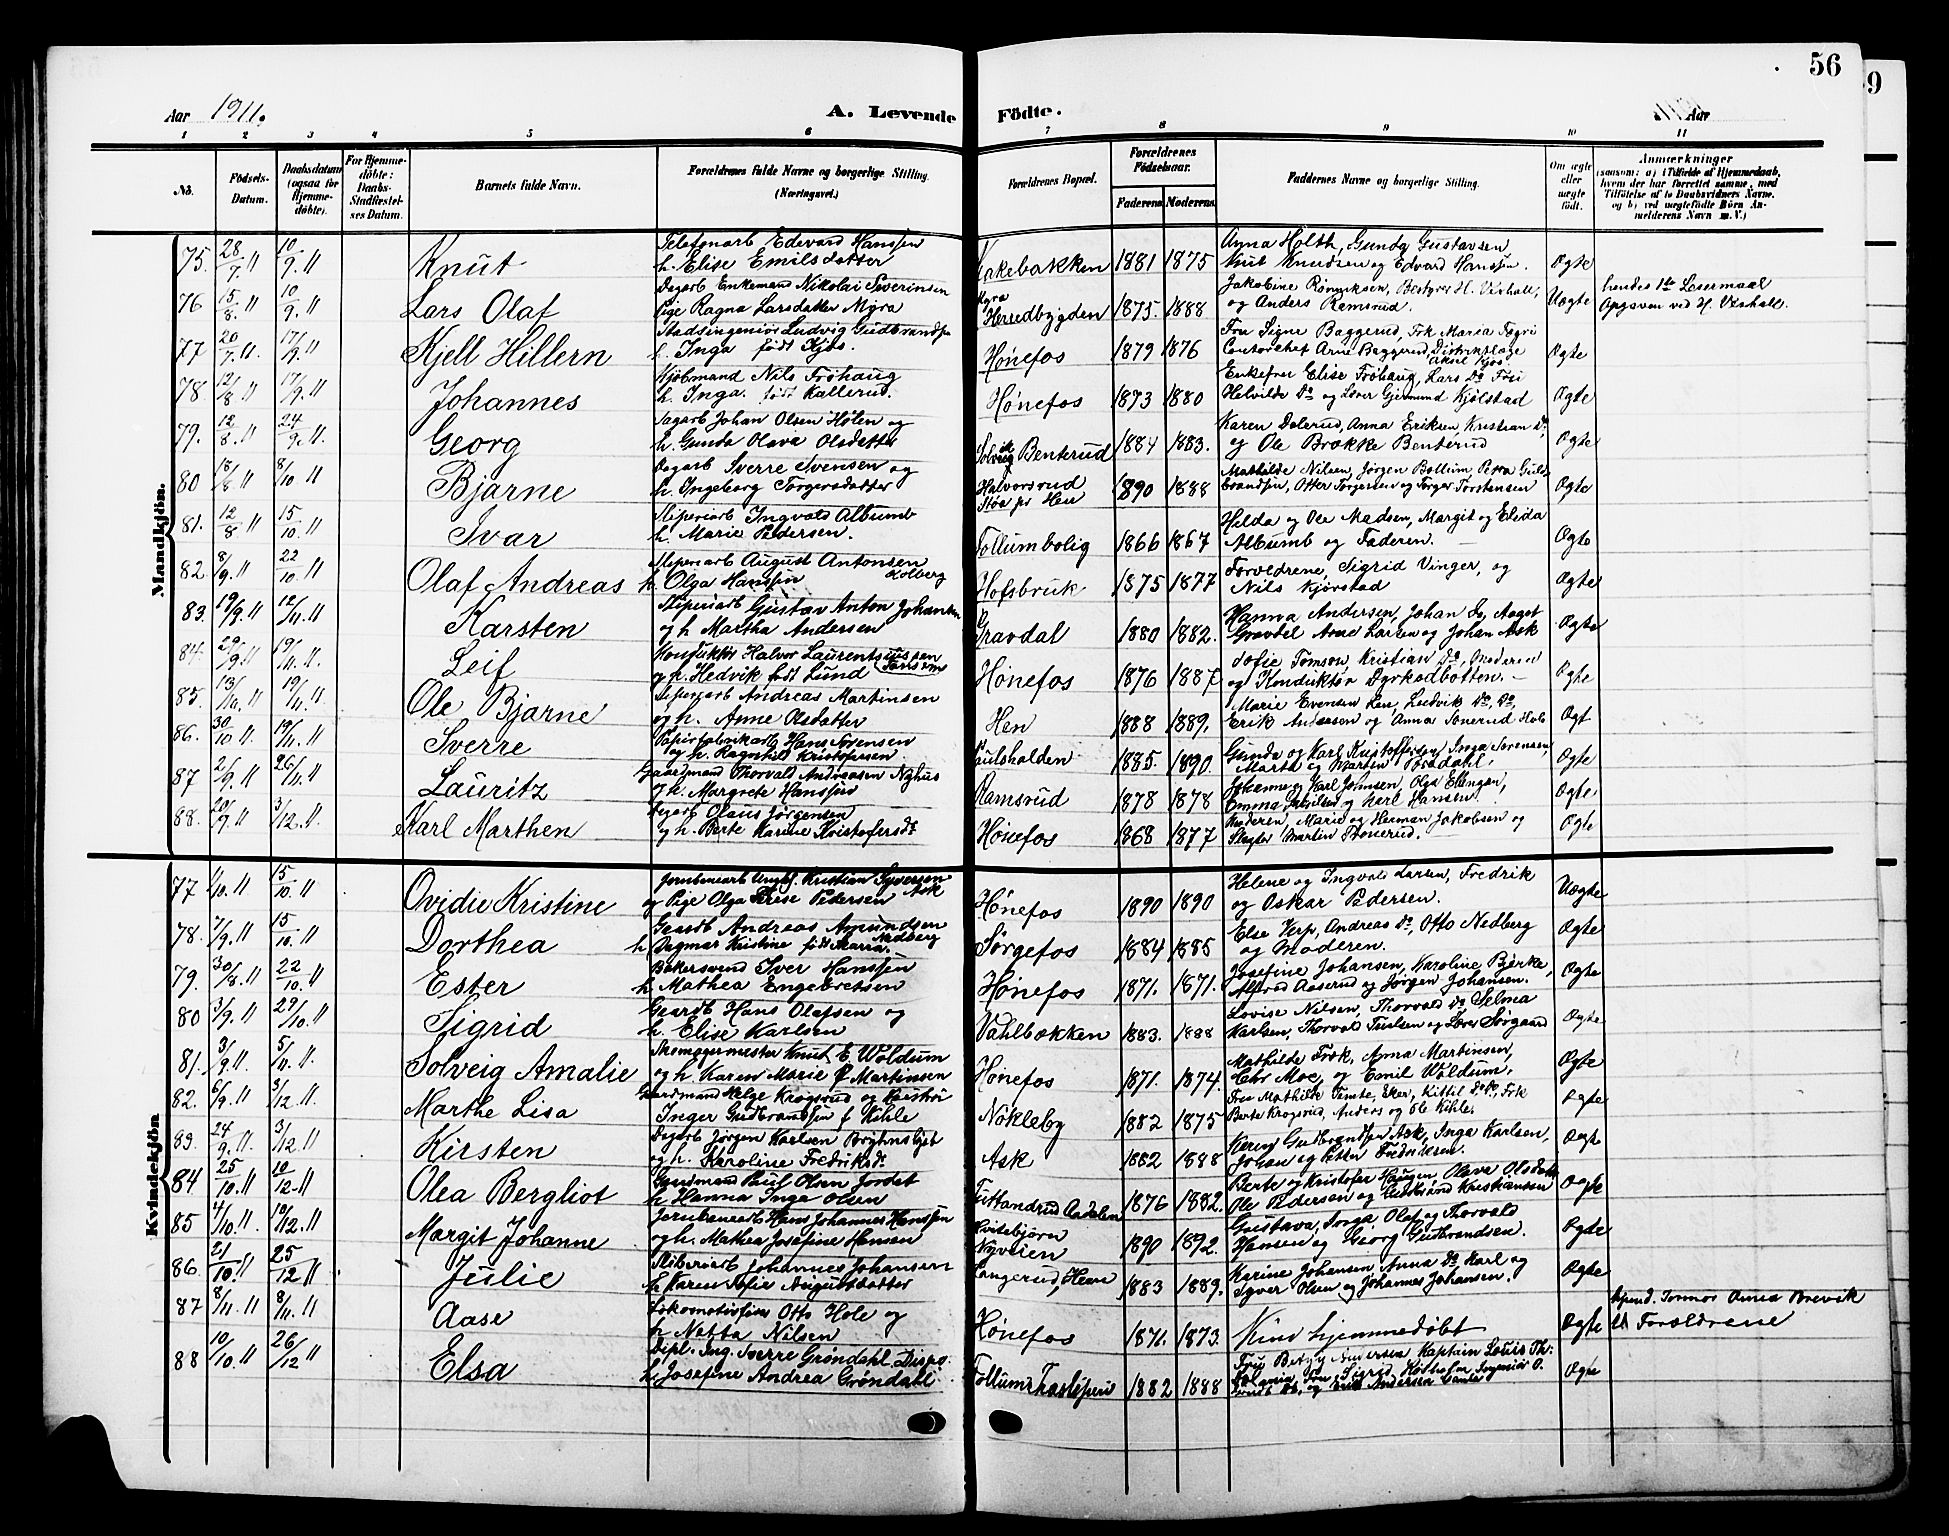 56
9
Aar 1911. A. Levende Födte. Aar
1 2 3 4 5 6 7 8 9 10 11
No. Födsels-Datum. Daabsdatum (ogsaa for Hjemmedöbte). For Hjemmedöbte: Daabs-Stadfæstelses Datum. Barnets fulde Navn. Forældrenes fulde Navne og borgerlige Stilling. (Næringsvei.) Forældrenes Bopæl. Forældrenes Födselsaar. Faderens Moderens Faddernes Navne og borgerlige Stilling. Om ægte eller uægte födt. Anmærkninger (saasom: a) i Tilfælde af Hjemmedaab, hvem der har forrettet samme, med Tilföielse af to Daabsvidners Navne. og b) ved uægtefödte Börn Anmelderens Navn m.V.)
Mandkjön.
75. 28/7 11 10/9 11 Knut Telefonarb Edevard Hanssen h. Elise Emilsdatter Kakebakken 1881 1875 Anna Holth, Gunda Gustavsen Knut Knudsen og Edvard Hanssen. Ægte
76 15/8 11 10/9 11 Lars Olaf Dagarb Enkemand Nikolai Severinsen Pige Ragna Larsdatter Myra Myra Hensedbygden 1875. 1888 Jakobine Bestyrer H. Vixhall, og Anders Ramsrud. Uægte hendes 1ste Leiermaal Opgaven ved H. Vixhall.
77 20/7 11. 17/9 11 Kjell Hillern Stadsingeniör Ludvig Gudbrandsen h. Inga født Kjos. Hønefos 1879 1876 Fru Signe Baggerud, Frk Maria Contorchef Arne Baggerud, Distriktslæge Aksel Kjos Ægte
78. 12/8 11 17/9 11 Johannes Kjöbmand Nils Fröhaug h. Inga. født Kallerud. Hønefos 1873 1880 Enkefru Elise Fröhaug, Lars Do Helvilde Do og Lærer Gjermund Kjölstad Ægte
79. 12/8 11. 24/9 11. Georg Sagarb Johan Olsen Hølen og h. Gunda Olava Olsdatter Benterud 1884 1883. Karen Dalerud, Anna Eriksen, Kristian Do, og Ole Brække Benterud Ægte
80 18/8 11 8/10 11 Bjarne Dagarb Sverre Svensen og h. Ingeborg Torgersdatter Halvorsrud Støa pr Hen 1890 1888 Mathilde Nilsen, Jørgen Bollum, Petra Guldbrandsen, Otter Torgersen og Torger Torstensen Ægte
81. 12/8 11 15/10 11 Ivar Sliperiarb Ingvald Albumb h. Marie Pedersen. Follum bolig 1866 1867 Hilda og Ole Madsen, Margit og Elida Albumb og Faderen. Ægte
82. 8/9 11 22/10 11 Olaf Andreas Sliperiarb August Antonsen Kolberg h. Olga Hanssen Hofsbruk 1875 1877 Forældrene, Sigrid Vinger, og Nils Kjörstad Ægte
83. 19/9 11 12/11 11 Karsten Sliperiarb Gustav Anton Johansen og h Martha Andersen Gravdal 1880 1882. Hanna Andersen, Johan Do, Aagot Gravdal Arne Larsen og Johan Ask Ægte
84. 29/9 11 19/11 11. Leif Konduktør Halvor Laurentsussen Tomson og h. Hedvik født Lund Hønefos 1876 1887 Sofie Tomson, Kristian Do, Moderen og Konduktør Dyrkedbotten. Ægte
85. 13/10 11. 19/11 11 Ole Bjarne Sliperiarb Andreas Martinsen og h. Anne Olsdatter Hen 1888 1889. Marie Evensen Hen, Ludvik Do, Do, Erik Andersen og Anna Ægt
86. 30/10 11. 19/11 11 Sverre Papirfabrikarb Hans Sørensen og h. Ragnhild Kristofersen Paulshalden 1885. 1890. Gunda og Karl Kristoffersen, Inga Sørensen, Marta og Morten Ægte
87 2/9 11 26/11 11 Lauritz Gaardmand Thorvald Andreasen Nyhus og h. Margrete Hanssen Ramsrud 1878 1878 Johanne og Karl Johnsen, Olga Ellingsen, Emma og Karl Hansen. Ægte
88. 20/9 11 3/12 11. Karl Marthen Dagarb Olaus Jørgensen og h. Berte Karine Kristofersdr Hønefos 1868 1877 Moderen, Marie og Herman Jakobsen og Slagter Martin Ægte
Kvindekjön
77 1/10. 11 15/10. 11 Ovidie Kristine Jernbanearb Ungk. Kristian Syversen Ask og Pige Olga Terese Pedersen Hønefos 1890 1890 Helene og Ingvald Larsen, Fredrik og Oskar Pedersen. Uægte
78. 7/9. 11 15/10. 11 Dorthea Gaardb Andreas Amundsen Nedberg h Dagmar Kristine født Maria Sørgefos 1884 1885 Else Verp, Andreas Do, Otto Nedberg og Moderen. Ægte
79. 30/8. 11 22/10. 11 Ester Bakersvend Iver Hanssen h. Mathea Engebretsen Hønefos 1871. 1871. Josefine Johansen, Karoline Bjerke, Alfred Aaserud og Jørgen Johansen. Ægte
80 3/9. 11 29/10. 11 Sigrid Gaardb Hans Olafsen og h. Elise Karlsen Vahlbakken 1883. 1888 Lovise Nilsen, Thorvald Do Selma Karlsen, Thorvald Tuelsen og Lærer Sørgaard Ægte
81. 3/9. 11 5/11. 11. Solveig Amalie Skomagermester Knut E. Woldum og h. Karen Marie f Martinsen Hønefos 1871. 1874 Mathilde Frok, Anna Martinsen, Chr Moe, og Emil Woldum. Ægte
82. 6/9. 11 3/12. 11 Marthe Lisa Gaardmand Helge Krogsrud og Hustru Inger Gudbrandsen f Kihle Nökleby 1882 1875 Fru Mathilde Temte, Eker, Kittil Do Do, Frk Berte Krogsrud, Anders og Ole Kihle. Ægte
89. 24/9. 11 3/12 11 Kirsten Dagarb Jørgen Karlsen og h. Karoline Fredriksdr Ask 1882 1888 Karen Gudbrandsen Ask, Inga Karlsen, Johan og Petter Fredriksen. Ægte
84 25/10 11 10/12. 11 Olea Bergliot Gaardmand Paul Olsen Jordet h Hanna Inga Olsen Aadalen 1876 1882. Berte og Kristofer Haugen, Olava Olsdatter Ole Pedersen og Gudbrand Kristiansen Ægte
85 4/10 11. 10/12. 11 Margit Johanne Jernbanearb Hans Johannes Hanssen og h. Mathea Josefine Hansen Hvitebjörn Nyveien 1890 1892. Gustava, Torga, Olaf og Thorvald Hansen og Georg Gudbrandsen. Ægte
86. 21/10. 11 25/12 11 Julie Sliberiarb Johannes Johansen h Karen Sofie Augustdatter Langerud, Heen 1883 1889. Karine Johansen Anna Do Karl og Syver Olsen og Johannes Johansen. Ægte
87 8/11. 11 8/11. 11 Aase Lokomotivfører Otto Hole og h Netta Nilsen Hønefos 1871. 1873. Kind hjemmedøbt Ægte Hjemd. Jormor Anna Brevik til Forældrene
88 10/10. 11 26/12 11 Elsa Dipl. Ing. Sverre Grøndahl, h. Josefine Andrea Grøndahl Follum Træsliperi 1882 1888 Fru Betzy Andersen Kaptain Louis Th: Fru Sigrid Ingeniör O. og Erik Andersen Ægte